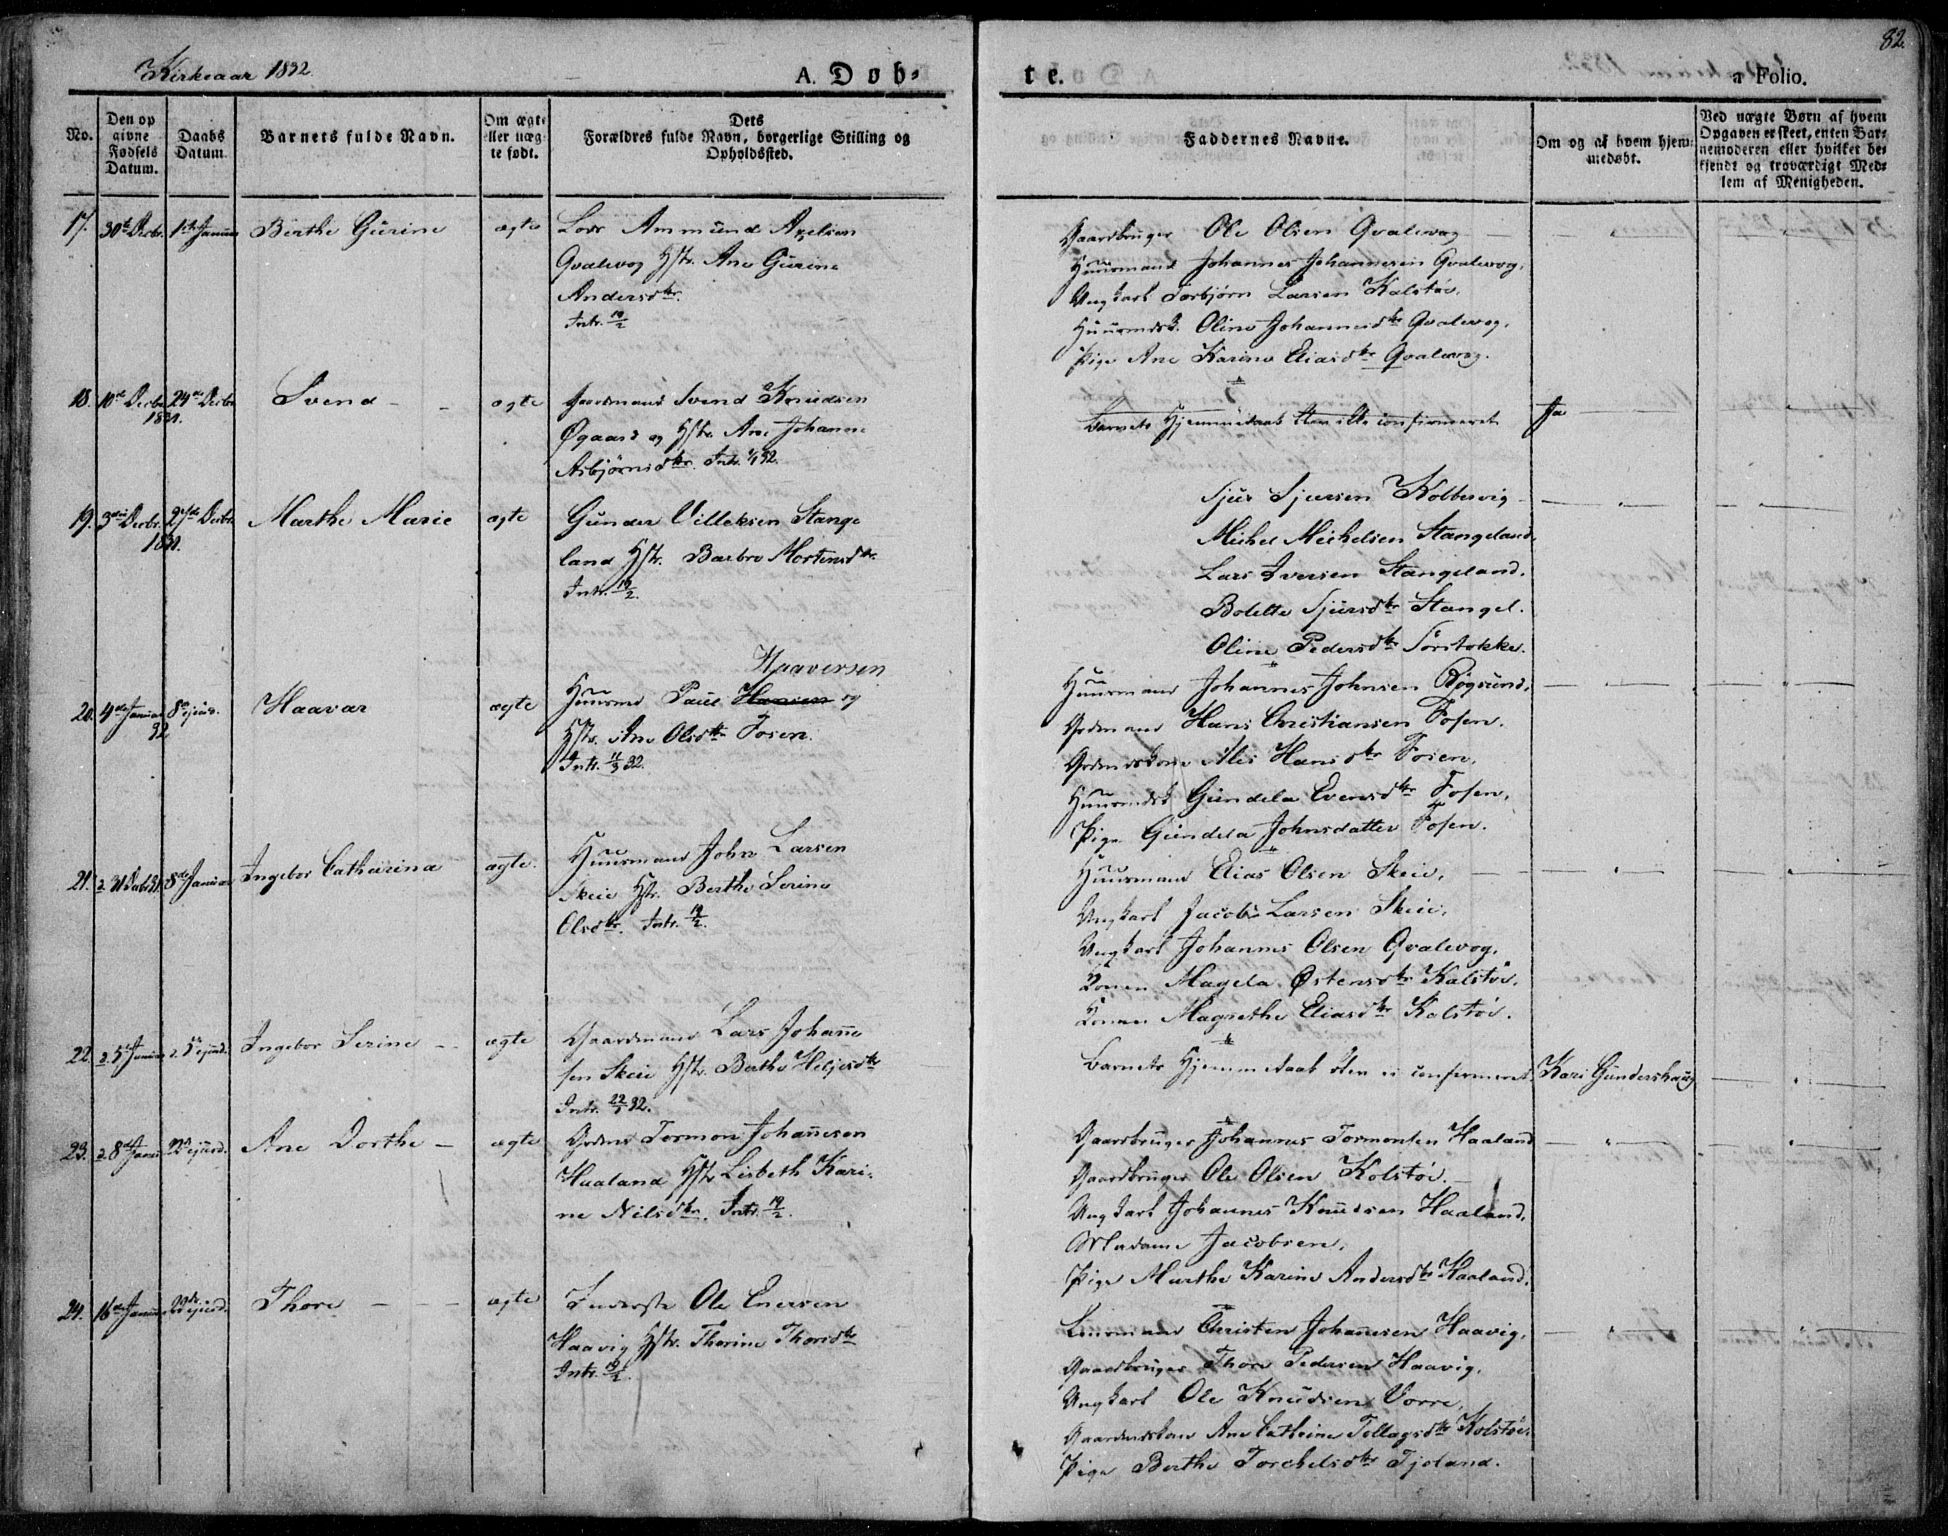 82.
Kirkeaar 1832
A. Døb-
te.
a Folio.
No.
Den op
givne
Fødsels
Datum.
Daabs
Datum.
Barnets fulde Navn.
Om ægte
eller uæg-
te født.
Dets
Forældres fulde Navn, borgerlige Stilling og
Opholdssted.
Faddernes Navne.
Om og af hvem hjem-
medøbt.
Ved uægte Børn af hvem
Opgaven er skeet, enten Bar-
nemoderen eller hvilket be-
kjendt og troværdigt Med-
lem af Menigheden.
17. 30te Decbr. 1ste Januar Berthe Gurine ægte
Ammund Axelsen
Qvalevog Hstr. Ane Gurine
Andersdtr.
Intr. 19/2
Gaardbruger Ole Olsen Qvalevog
Huusmand Johannes Johannesen Qvalevog.
Ungkarl Torbjørn Larsen Kalstøe.
Huusmdsk. Oline Johannesdtr Qvalevog.
Pige Ane Karine Eliasdtr Qvalevog.
18. 10de Decbr 1831. 24de Decbr Svend ægte
Gaardmand Svend Knudsen
Øgaard og Hstr. Ane Johanne
Asbjørnsdtr. Intr. 1/1 32.
Barnets Hjemmedaab blev ikke confirmeret
Ja
19. 3die Decbr. 1831. Decbr Marthe Marie ægte
Gunder Villeksen Stange
land Hstr. Barbro Mortensdtr.
Intr. 19/2.
Sjur Sjursen Kolbevig
Michel Michelsen Stangeland,
Lars Iversen Stangeland.
Bolette Sjursdtr Stangel.
Oline Pedersdtr Sørstokke.
20. 4de Januar 32 8de ejusd. Haavar ægte
Haaversen
Huusmd Paul Hansen og
Hstr. Ane Olsdtr Fosen.
Intr. 11/3 32.
Huusmand Johannes Johnsen Røgsund,
Grdmand Hans Christiansen Fosen.
Grdmdskone Alis Hansdtr Fosen,
Huusmdsk Gundela Evensdtr Fosen,
Pige Gundela Johnsdatter Fosen.
21. 31 Decbr 31. 8de Januar Ingebor Catharina ægte.
Huusmand John Larsen
Skeie Hstr. Berthe Serine
Olsdtr. Intr. 19/2.
Huusmand Elias Olsen Skeie,
Ungkarl Jacob Larsen Skeie,
Ungkarl Johannes Olsen Qvalevog,
Konen Magela Østensdtr Kalstøe,
Konen Magrethe Eliasdtr Kalstøe.
22. 5te Januar ejusd. Ingebor Serine ægte
Gaardmand Lars Johanne
sen Skeie Hstr. Berthe Heljesdtr
Intr. 22/1 32.
Barnets Hjemmedaab blev ei confirmeret. Kari Gundershaug
23. 8de Janu ejusd. Ane Dorthe ægte
Grdmd Tormon Johannesen
Haaland Hstr Lisbeth Kari-
ne Nilsdtr. Intr. 19/2.
Gaardbruger Johannes Tormonsen Haaland
Gaardbruger Ole Olsen Kolstøe.
Ungkarl Johannes Knudsen Haaland,
Madame Jacobsen,
Pige Marthe Karine Andersdtr Haaland.
24. 16de Januar ejusd. Thore ægte
Inderste Ole Enersen
Haavig Hstr. Thorine Thoresdtr
Intr. 19/2.
Christen Johannesen Haavig,
Gaardbruger Thore Pedersen Haavig,
Ungkarl Ole Knudsen Vorre,
Gaardmdskone Ane Cathrine Tollagsdtr Kolstøe.
Pige Berthe Torchelsdtr Tjøland.